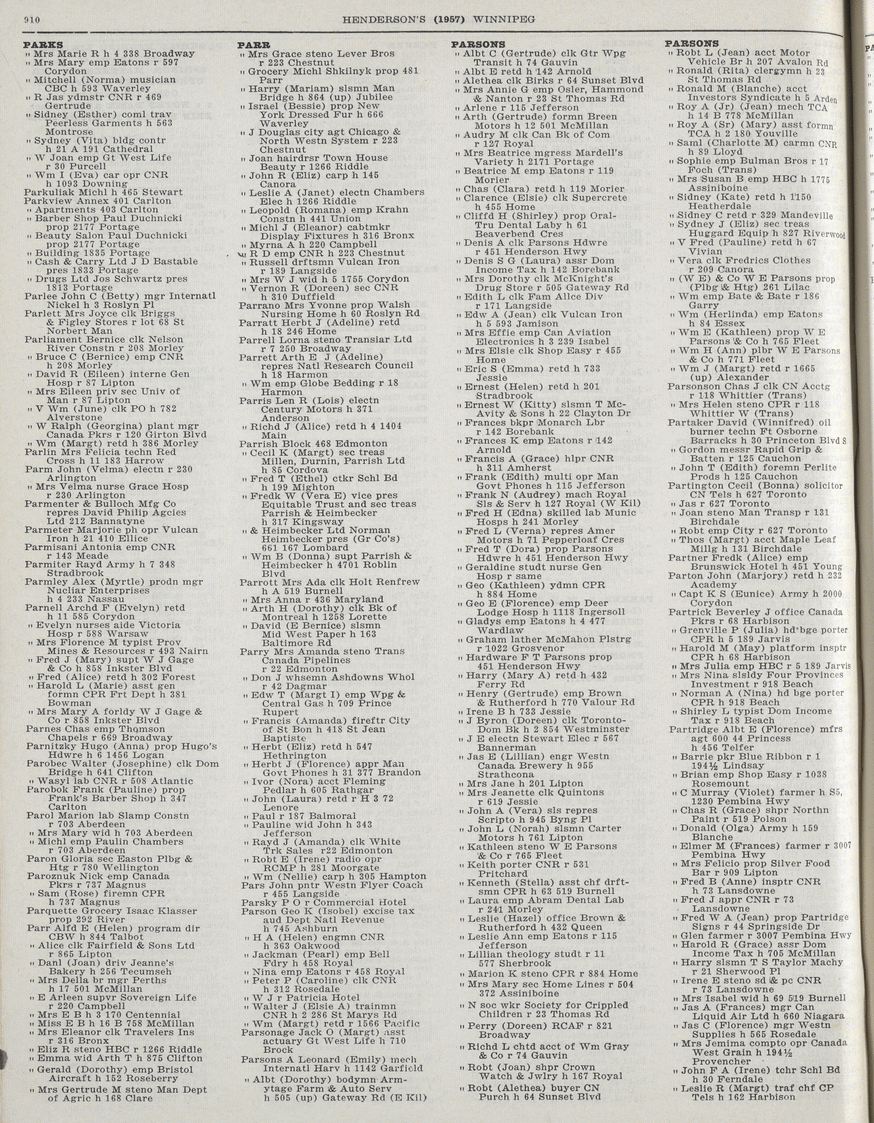 910
HENDERSON'S (1957) WINNIPEG
PARKS
" Mrs Marie R h 4 338 Broadway
" Mrs Mary emp Eatons r 597
Corydon
" Mitchell (Norma) musician
CBC h 593 Waverley
" R Jas ydmstr CNR r 469
Gertrude
" Sidney (Esther) coml trav
Peerless Garments h 563
Montrose
" Sydney (Vita) bldg contr
h 21 A 191 Cathedral
" W Joan emp Gt West Life
r 30 Purcell
" Wm I (Eva) car opr CNR
h 1093 Downing
Parkuliak Michl h 465 Stewart
Parkview Annex 401 Carlton
" Apartments 403 Carlton
" Barber Shop Paul Duchnicki
prop 2177 Portage
" Beauty Salon Paul Duchnicki
prop 2177 Portage
" Building 1835 Portage
" Cash & Carry Ltd J D Bastable
pres 1833 Portage
" Drugs Ltd Jos Schwartz pres
1813 Portage
Parlee John C (Betty) mgr Internatl
Nickel h 3 Roslyn Pl
Parlett Mrs Joyce clk Briggs
& Figley Stores r lot 68 St
Norbert Man
Parliament Bernice clk Nelson
River Constn r 208 Morley
" Bruce C (Bernice) emp CNR
h 208 Morley
" David R (Eileen) interne Gen
Hosp r 87 Lipton
" Mrs Eileen priv sec Univ of
Man r 87 Lipton
" V Wm (June) clk PO h 782
Alverstone
" W Ralph (Georgina) plant mgr
Canada Pkrs r 120 Girton Blvd
" Wm (Margt) retd h 386 Morley
Parlin Mrs Felicia techn Red
Cross h 11 183 Harrow
Parm John (Velma) electn r 230
Arlington
" Mrs Velma nurse Grace Hosp
r 230 Arlington
Parmenter & Bulloch Mfg Co
repres David Philip Agcies
Ltd 212 Bannatyne
Parmeter Marjorie ph opr Vulcan
Iron h 21 410 Ellice
Parmisani Antonia emp CNR
r 143 Meade
Parmiter Rayd Army h 7 348
Stradbrook
Parmley Alex (Myrtle) prodn mgr
Nuclear Enterprises
h 4 233 Nassau
Parnell Archd F (Evelyn) retd
h 11 585 Corydon
" Evelyn nurses aide Victoria
Hosp r 588 Warsaw
" Mrs Florence M typist Prov
Mines & Resources r 493 Nairn
" Fred J (Mary) supt W J Gage
& Co h 858 Inkster Blvd
" Fred (Alice) retd h 302 Forest
" Harold L (Marie) asst gen
formn CPR Frt Dept h 381
Bowman
" Mrs Mary A forldy W J Gage &
Co r 858 Inkster Blvd
Parnes Chas emp Thomson
Chapels r 669 Broadway
Parnitzky Hugo (Anna) prop Hugo's
Hdwre h 6 1456 Logan
Parobec Walter (Josephine) clk Dom
Bridge h 641 Clifton
" Wasyl lab CNR r 508 Atlantic
Parobok Frank (Pauline) prop
Frank's Barber Shop h 347
Carlton
Parol Marion lab Slamp Constn
r 703 Aberdeen
" Mrs Mary wid h 703 Aberdeen
" Michl emp Paulin Chambers
r 703 Aberdeen
Paron Gloria sec Easton Plbg &
Htg r 780 Wellington
Paroznuk Nick emp Canada
Pkrs r 737 Magnus
" Sam (Rose) firemn CPR
h 737 Magnus
Parquette Grocery Isaac Klasser
prop 292 River
Parr Alfd E (Helen) program dir
CBW h 844 Talbot
" Alice clk Fairfield & Sons Ltd
r 865 Lipton
" Danl (Joan) driv Jeanne's
Bakery h 256 Tecumseh
" Mrs Della br mgr Perths
h 17 501 McMillan
" E Arleen supvr Sovereign Life
r 220 Campbell
" Mrs E B h 3 170 Centennial
" Miss E B h 16 B 758 McMillan
" Mrs Eleanor clk Travelers Ins
r 316 Bronx
" Eliz R steno HBC r 1266 Riddle
" Emma wid Arth T h 875 Clifton
" Gerald (Dorothy) emp Bristol
Aircraft h 152 Roseberry
" Mrs Gertrude M steno Man Dept
of Agric h 168 Clare
PARR
" Mrs Grace steno Lever Bros
r 223 Chestnut
" Grocery Michl Shkilnyk prop 481
Parr
" Harry (Mariam) slsmn Man
Bridge h 864 (up) Jubilee
" Israel (Bessie) prop New
York Dressed Fur h 666
Waverley
" J Douglas city agt Chicago &
North Westn System r 223
Chestnut
" Joan hairdrsr Town House
Beauty r 1266 Riddle
" John R (Eliz) carp h 145
Canora
" Leslie A (Janet) electn Chambers
Elec h 1266 Riddle
" Leopold (Romana) emp Krahn
Constn h 441 Union
" Michl J (Eleanor) cabtmkr
Display Fixtures h 316 Bronx
" Myrna A h 220 Campbell
" R D emp CNR h 223 Chestnut
" Russell drftsmn Vulcan Iron
r 189 Langside
" Mrs W J wid h 5 1755 Corydon
" Vernon R (Doreen) sec CNR
h 310 Duffield
Parrano Mrs Yvonne prop Walsh
Nursing Home h 60 Roslyn Rd
Parratt Herbt J (Adeline) retd
h 18 246 Home
Parrell Lorna steno Transiar Ltd
r 7 250 Broadway
Parrett Arth E J (Adeline)
repres Natl Research Council
h 18 Harmon
" Wm emp Globe Bedding r 18
Harmon
Parris Len R (Lois) electn
Century Motors h 371
Anderson
" Richd J (Alice) retd h 4 1404
Main
Parrish Block 468 Edmonton
" Cecil K (Margt) sec treas
Millen, Durnin, Parrish Ltd
h 85 Cordova
" Fred T (Ethel) ctkr Schl Bd
h 199 Mighton
" Fredk W (Vera E) vice pres
Equitable Trust and sec treas
Parrish & Heimbecker
h 317 Kingsway
" & Heimbecker Ltd Norman
Heimbecker pres (Gr Co's)
661 167 Lombard
" Wm B (Donna) supt Parrish &
Heimbecker h 4701 Roblin
Blvd
Parrott Mrs Ada clk Holt Renfrew
h A 519 Burnell
" Mrs Anna r 436 Maryland
" Arth H (Dorothy) clk Bk of
Montreal h 1258 Lorette
" David (E Bernice) slsmn
Mid West Paper h 163
Baltimore Rd
Parry Mrs Amanda steno Trans
Canada Pipelines
r 22 Edmonton
" Don J whsemn Ashdowns Whol
r 42 Dagmar
" Edw T (Margt I) emp Wpg &
Central Gas h 709 Prince
Rupert
" Francis (Amanda) fireftr City
of St Bon h 418 St Jean
Baptiste
" Herbt (Eliz) retd h 547
Hethrington
" Herbt J (Florence) appr Man
Govt Phones h 31 377 Brandon
" Ivor (Nora) acct Fleming
Pedlar h 605 Rathgar
" John (Laura) retd r H 3 72
Lenore
" Paul r 187 Balmoral
" Pauline wid John h 343
Jefferson
" Rayd J (Amanda) clk White
Trk Sales r22 Edmonton
" Robt E (Irene) radio opr
RCMP h 281 Moorgate
" Wm (Nellie) carp h 305 Hampton
Pars John pntr Westn Flyer Coach
r 455 Langside
Parsky P O r Commercial Hotel
Parson Geo K (Isobel) excise tax
aud Dept Natl Revenue
h 745 Ashburn
" H A (Helen) engmn CNR
h 363 Oakwood
" Jackman (Pearl) emp Bell
Fdry h 458 Royal
" Nina emp Eatons r 458 Royal
" Peter P (Caroline) clk CNR
h 312 Rosedale
" W J r Patricia Hotel
" Walter J (Elsie A) trainmn
CNR h 2 286 St Marys Rd
" Wm (Margt) retd r 1566 Pacific
Parsonage Jack O (Margt) asst
actuary Gt West Life h 710
Brock
Parsons A Leonard (Emily) mech
Internatl Harv h 1142 Garfield
" Albt (Dorothy) bodymn Arm-
ytage Farm & Auto Serv
h 505 (up) Gateway Rd (E Kil)
PARSONS
" Albt C (Gertrude) clk Gtr Wpg
Transit h 74 Gauvin
" Albt E retd h 142 Arnold
" Alethea clk Birks r 64 Sunset Blvd
" Mrs Annie G emp Osler, Hammond
& Nanton r 23 St Thomas Rd
" Arlene r 115 Jefferson
" Arth (Gertrude) formn Breen
Motors h 12 501 McMillan
" Audry M clk Can Bk of Com
r 127 Royal
" Mrs Beatrice mgress Mardell's
Variety h 2171 Portage
" Beatrice M emp Eatons r 119
Morier
" Chas (Clara) retd h 119 Morier
" Clarence (Elsie) clk Supercrete
h 455 Home
" Cliffd H (Shirley) prop Oral-
Tru Dental Laby h 61
Beaverbend Cres
" Denis A clk Parsons Hdwre
r 451 Henderson Hwy
" Denis S G (Laura) assr Dom
Income Tax h 142 Borebank
" Mrs Dorothy clk McKnight's
Drug Store r 505 Gateway Rd
" Edith L clk Fam Allce Div
r 171 Langside
" Edw A (Jean) clk Vulcan Iron
h 5 593 Jamison
" Mrs Effie emp Can Aviation
Electronics h 3 239 Isabel
" Mrs Elsie clk Shop Easy r 455
Home
" Eric S (Emma) retd h 733
Jessie
" Ernest (Helen) retd h 201
Stradbrook
" Ernest W (Kitty) slsmn T Mc-
Avity & Sons h 22 Clayton Dr
" Frances bkpr Monarch Lbr
r 142 Borebank
" Frances K emp Eatons r 142
Arnold
" Francis A (Grace) hlpr CNR
h 311 Amherst
" Frank (Edith) multi opr Man
Govt Phones h 115 Jefferson
" Frank N (Audrey) mach Royal
Sls & Serv h 127 Royal (W Kil)
" Fred H (Edna) skilled lab Munic
Hosps h 241 Morley
" Fred L (Verna) repres Amer
Motors h 71 Pepperloaf Cres
" Fred T (Dora) prop Parsons
Hdwre h 451 Henderson Hwy
" Geraldine studt nurse Gen
Hosp r same
" Geo (Kathleen) ydmn CPR
h 884 Home
" Geo E (Florence) emp Deer
Lodge Hosp h 1118 Ingersoll
" Gladys emp Eatons h 4 477
Wardlaw
" Graham lather McMahon Plstrg
r 1022 Grosvenor
" Hardware F T Parsons prop
451 Henderson Hwy
" Harry (Mary A) retd h 432
Ferry Rd
" Henry (Gertrude) emp Brown
& Rutherford h 770 Valour Rd
" Irene B h 733 Jessie
" J Byron (Doreen) clk Toronto-
Dom Bk h 2 854 Westminster
" J E electn Stewart Elec r 567
Bannerman
" Jas E (Lillian) engr Westn
Canada Brewery h 955
Strathcona
" Mrs Jane h 201 Lipton
" Mrs Jeanette clk Quintons
r 619 Jessie
" John A (Vera) sls repres
Scripto h 945 Byng Pl
" John L (Norah) slsmn Carter
Motors h 761 Lipton
" Kathleen steno W E Parsons
& Co r 765 Fleet
" Keith porter CNR r 531
Pritchard
" Kenneth (Stella) asst chf drft-
smn CPR h 63 519 Burnell
" Laura emp Abram Dental Lab
r 241 Morley
" Leslie (Hazel) office Brown &
Rutherford h 432 Queen
" Leslie Ann emp Eatons r 115
Jefferson
" Lillian theology studt r 11
577 Sherbrook
" Marion K steno CPR r 884 Home
" Mrs Mary sec Home Lines r 504
372 Assiniboine
" N soc wkr Society for Crippled
Children r 23 Thomas Rd
" Perry (Doreen) RCAF r 821
Broadway
" Richd L chtd acct of Wm Gray
& Co r 74 Gauvin
" Robt (Joan) shpr Crown
Watch & Jwlry h 167 Royal
" Robt (Alethea) buyer CN
Purch h 64 Sunset Blvd
PARSONS
" Robt L (Jean) acct Motor
Vehicle Br h 207 Avalon Rd
" Ronald (Rita) clergymn h 23
St Thomas Rd
" Ronald M (Blanche) acct
Investors Syndicate h 5 Arden
" Roy A (Jr) (Jean) mech TCA
h 14 B 778 McMillan
" Roy A (Sr) (Mary) asst formn
TCA h 2 180 Youville
" Saml (Charlotte M) carmn CNR
h 89 Lloyd
" Sophie emp Bulman Bros r 17
Foch (Trans)
" Mrs Susan B emp HBC h 1775
Assiniboine
" Sidney (Kate) retd h 1150
Heatherdale
" Sidney C retd r 329 Mandeville
" Sydney J (Eliz) sec treas
Huggard Equip h 827 Riverwood
" V Fred (Pauline) retd h 67
Vivian
" Vera clk Fredrics Clothes
r 209 Canora
" (W E) & Co W E Parsons prop
(Plbg & Htg) 261 Lilac
" Wm emp Bate & Bate r 186
Garry
" Wm (Herlinda) emp Eatons
h 84 Essex
" Wm E (Kathleen) prop W E
Parsons & Co h 765 Fleet
" Wm H (Ann) plbr W E Parsons
& Co h 771 Fleet
" Wm J (Margt) retd r 1665
(up) Alexander
Parsonson Chas J clk CN Acctg
r 118 Whittier (Trans)
" Mrs Helen steno CPR r 118
Whittier W (Trans)
Partaker David (Winnifred) oil
burner techn Ft Osborne
Barracks h 30 Princeton Blvd S
" Gordon messr Rapid Grip &
Batten r 125 Cauchon
" John T (Edith) foremn Perlite
Prods h 125 Cauchon
Partington Cecil (Bonna) solicitor
CN Tels h 627 Toronto
" Jas r 627 Toronto
" Joan steno Man Transp r 131
Birchdale
" Robt emp City r 627 Toronto
" Thos (Margt) acct Maple Leaf
Millg h 131 Birchdale
Partner Fredk (Alice) emp
Brunswick Hotel h 451 Young
Parton John (Marjory) retd h 232
Academy
" Capt K S (Eunice) Army h 2000
Corydon
Partrick Beverley J office Canada
Pkrs r 68 Harbison
" Grenville P (Julia) hd bge porter
CPR h 5 189 Jarvis
" Harold M (May) platform insptr
CPR h 68 Harbison
" Mrs Julia emp HBC r 5 189 Jarvis
" Mrs Nina slsldy Four Provinces
Investment r 918 Beach
" Norman A (Nina) hd bge porter
CPR h 918 Beach
" Shirley L typist Dom Income
Tax r 918 Beach
Partridge Albt E (Florence) mfrs
agt 600 44 Princess
h 456 Telfer
" Barrie pkr Blue Ribbon r 1
194½ Lindsay
" Brian emp Shop Easy r 1038
Rosemount
" C Murray (Violet) farmer h S5,
1230 Pembina Hwy
" Chas R (Grace) shpr Northn
Paint r 519 Polson
" Donald (Olga) Army h 159
Blanche
" Elmer M (Frances) farmer r 3007
Pembina Hwy
" Mrs Felicio prop Silver Food
Bar r 909 Lipton
" Fred B (Anne) insptr CNR
h 73 Lansdowne
" Fred J appr CNR r 73
Lansdowne
" Fred W A (Jean) prop Partridge
Signs r 44 Springside Dr
" Glen farmer r 3007 Pembina Hwy
" Harold R (Grace) assr Dom
Income Tax h 705 McMillan
" Harry slsmn T S Taylor Machy
r 21 Sherwood Pl
" Irene E steno sd & inc CPR
r 73 Lansdowne
" Mrs Isabel wid h 69 519 Burnell
" Jas A (Frances) mgr Can
Liquid Air Ltd h 660 Niagara
" Jas C (Florence) mgr Westn
Supplies h 565 Rosedale
" Mrs Jemima compto opr Canada
West Grain h 194½
Provencher
" John F A (Irene) tchr Schl Bd
h 30 Ferndale
" Leslie R (Margt) traf chf CP
Tels h 162 Harbison